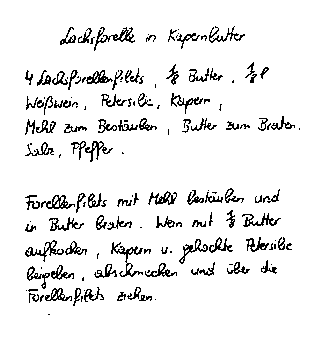 Lachsforelle in Kapernbutter
4 Lachsforellenfilets, ½ Butter, ⅛ l
Weißwein, Petersilie, Kapern,
Mehl zum Bestäuben, Butter zum Braten.
Salz, Pfeffer.
Forellenfilets mit Mehl bestäuben und
in Butter braten. Wein mit ½ Butter
aufkochen, Kapern u. gehackte Petersilie
beigeben, abschmecken und über die
Forellenfilets ziehen.